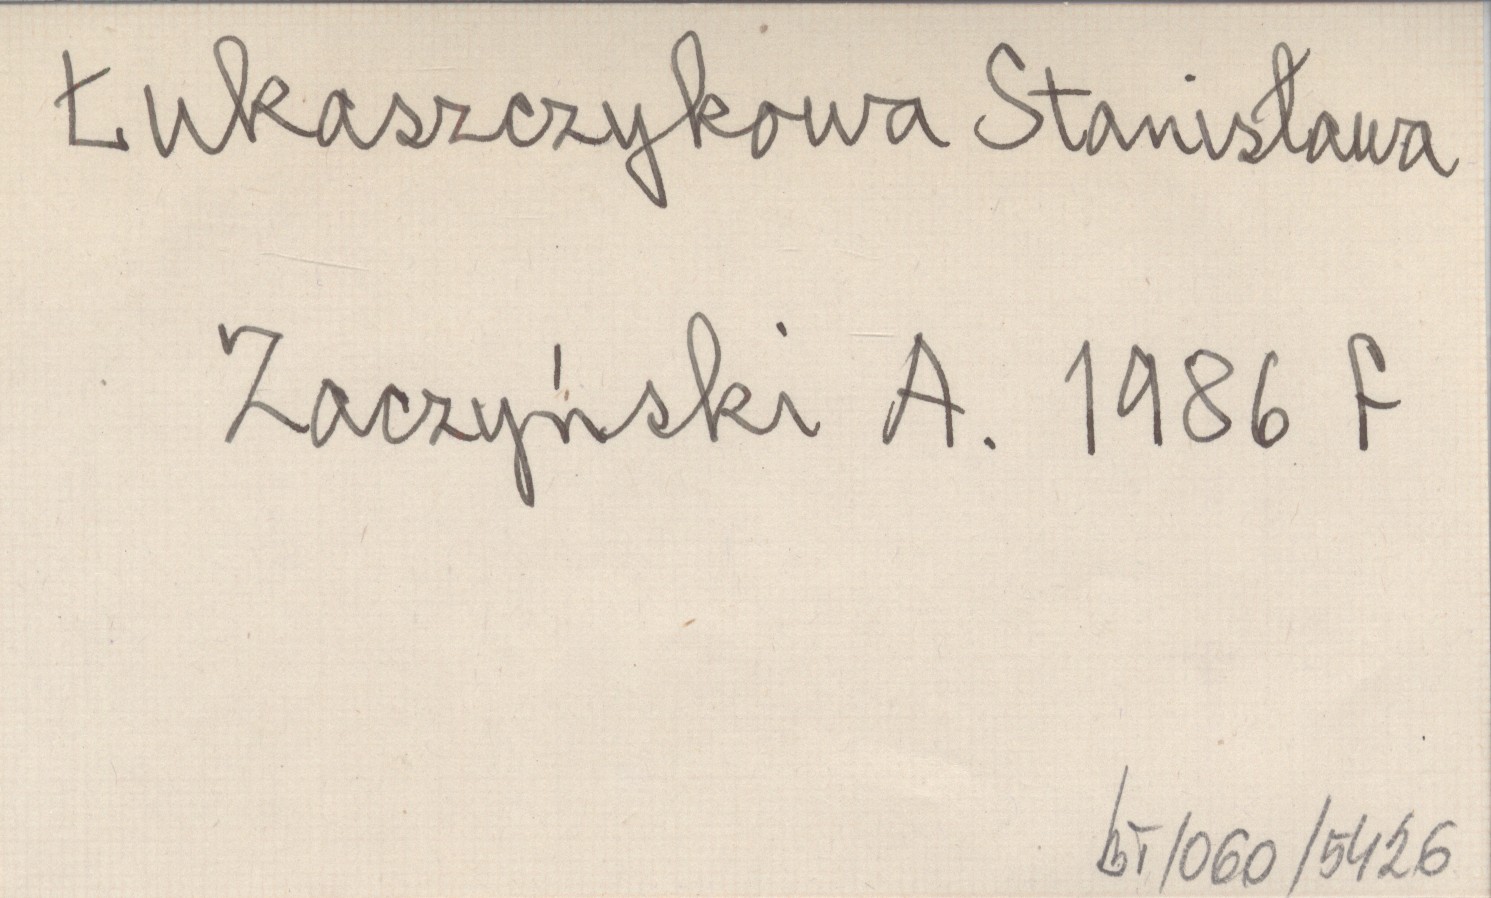 Łukaszczykowa Stanisława
Zaczyński A. 1986 F
/060/5426